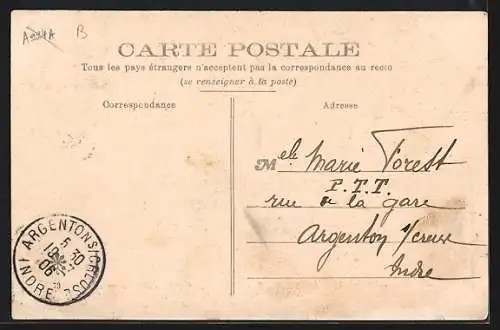 B
CARTE POSTALE
Tous les pays étrangers n'acceptent pas la correspondance au recto
(se renseigner à la poste)
Correspondance
Adresse
Melle Marie Forest
P.T.T.
rue de la gare
Argenton s/creuse
Indre
ARGENTON S/CREUSE
5 30
18
06
INDRE